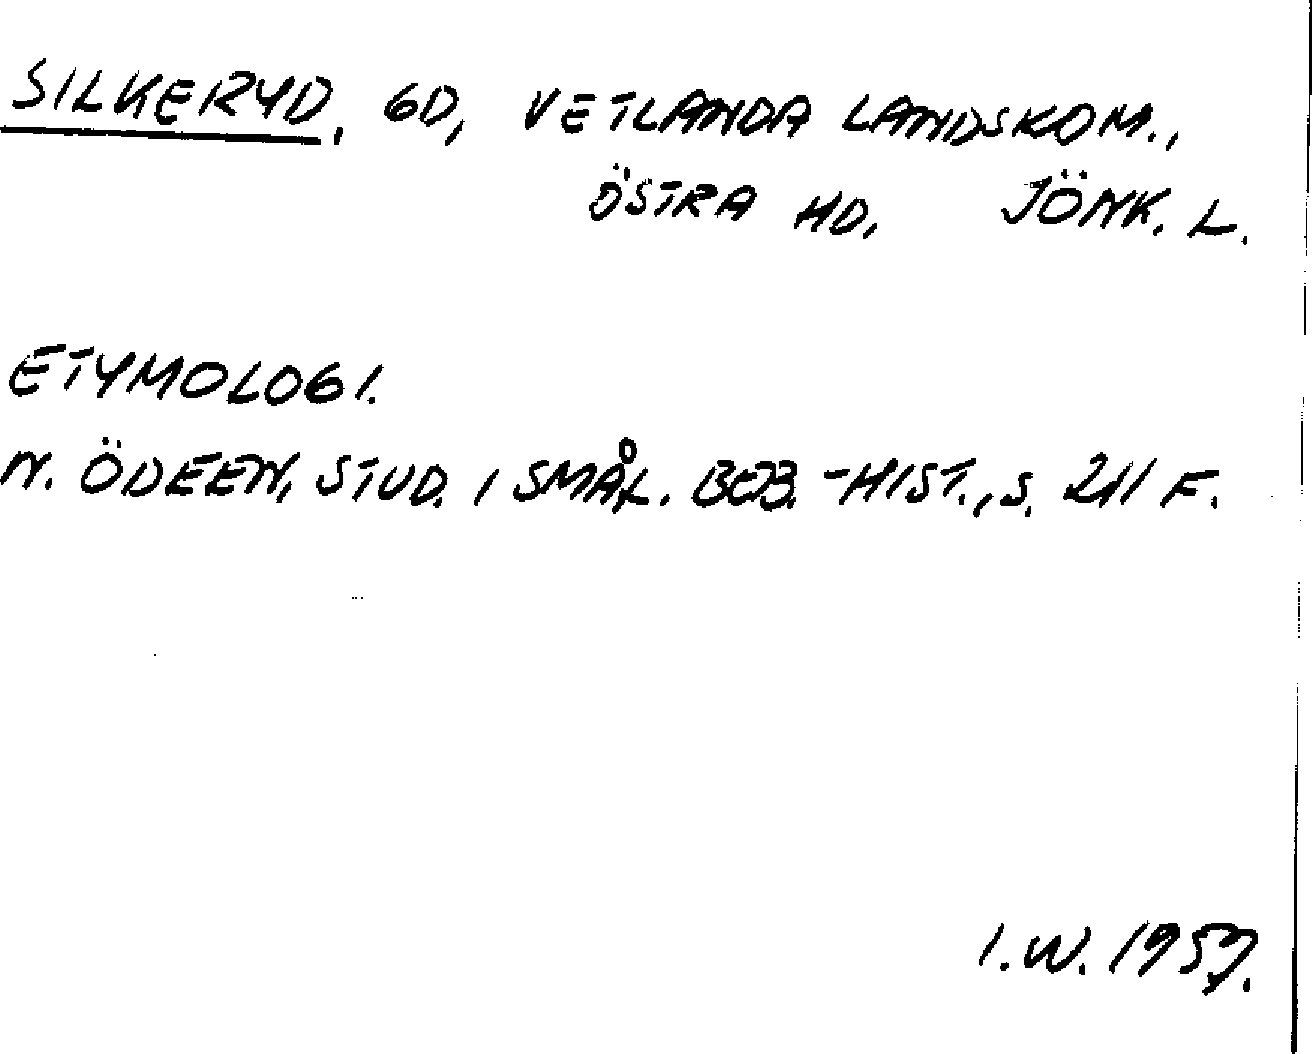 SILKERYD, GD, VETLANDA LANDSKOM.,
ÖSTRA HD, JÖNK. L.
ETYMOLOGI.
N. ÖDEEN, STUD. I SMÅL. BEB.-HIST., S. 211 F.
I.W. 1957.